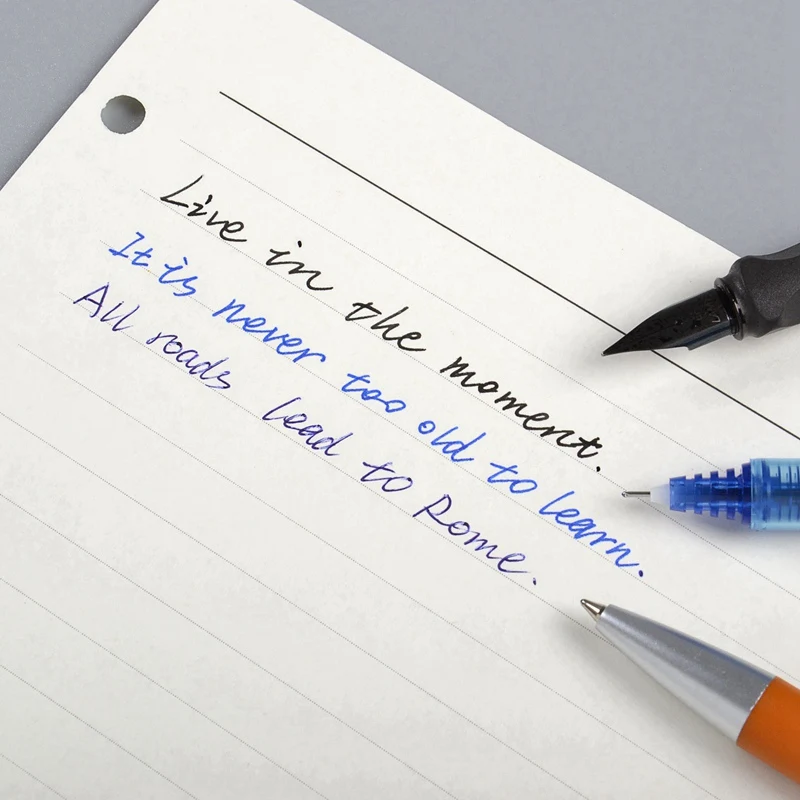 Live in the moment.
It is never too old to learn.
All roads lead to Rome.